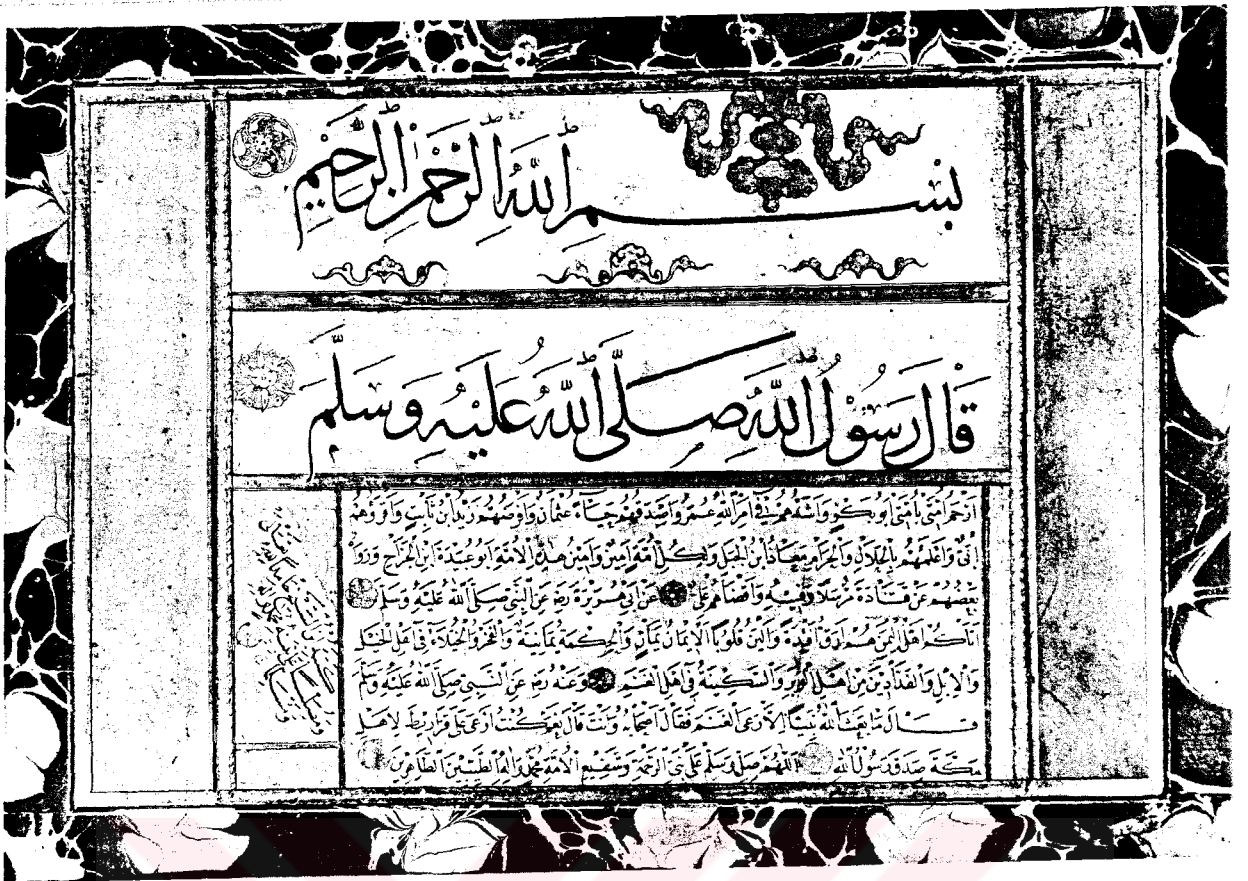 بسم الله الرحمن الرحيم
قال رسول الله صلى الله عليه وسلم
ارحم امتي بامتي ابو بكر واشدهم في امر الله عمر واصدقهم حياء عثمان وافرضهم زيد ابن ثابت واقرؤهم
ابي واعلمهم بالحلال والحرام معاذ ابن الجبل ولكل امة امين وامين هذه الامة ابو عبيدة ابن الجراح وروا
بعضهم عن قتادة مرسلا وفيه واقضاهم علي عن ابي هريرة رضه عن النبي صلى الله عليه وسلم
اتاكم اهل اليمن هم ارق افيدة والين قلوبا الايمان يمان والحكمة يمانية والفخر والخيلاء في اهل الخيل
والابل والفدادين من اهل الوبر والسكينة في اهل الغنم وعنه رضه عن النبي صلى الله عليه وسلم
قال ما بعث الله نبيا الا رعى الغنم فقال اصحابه وانت قال نعم كنت ارعى على قراريط لاهل
مكة صدق رسول الله اللهم صل وسلم على نبي الرحمة وشفيع الامة محمد واله الطيبين الطاهرين